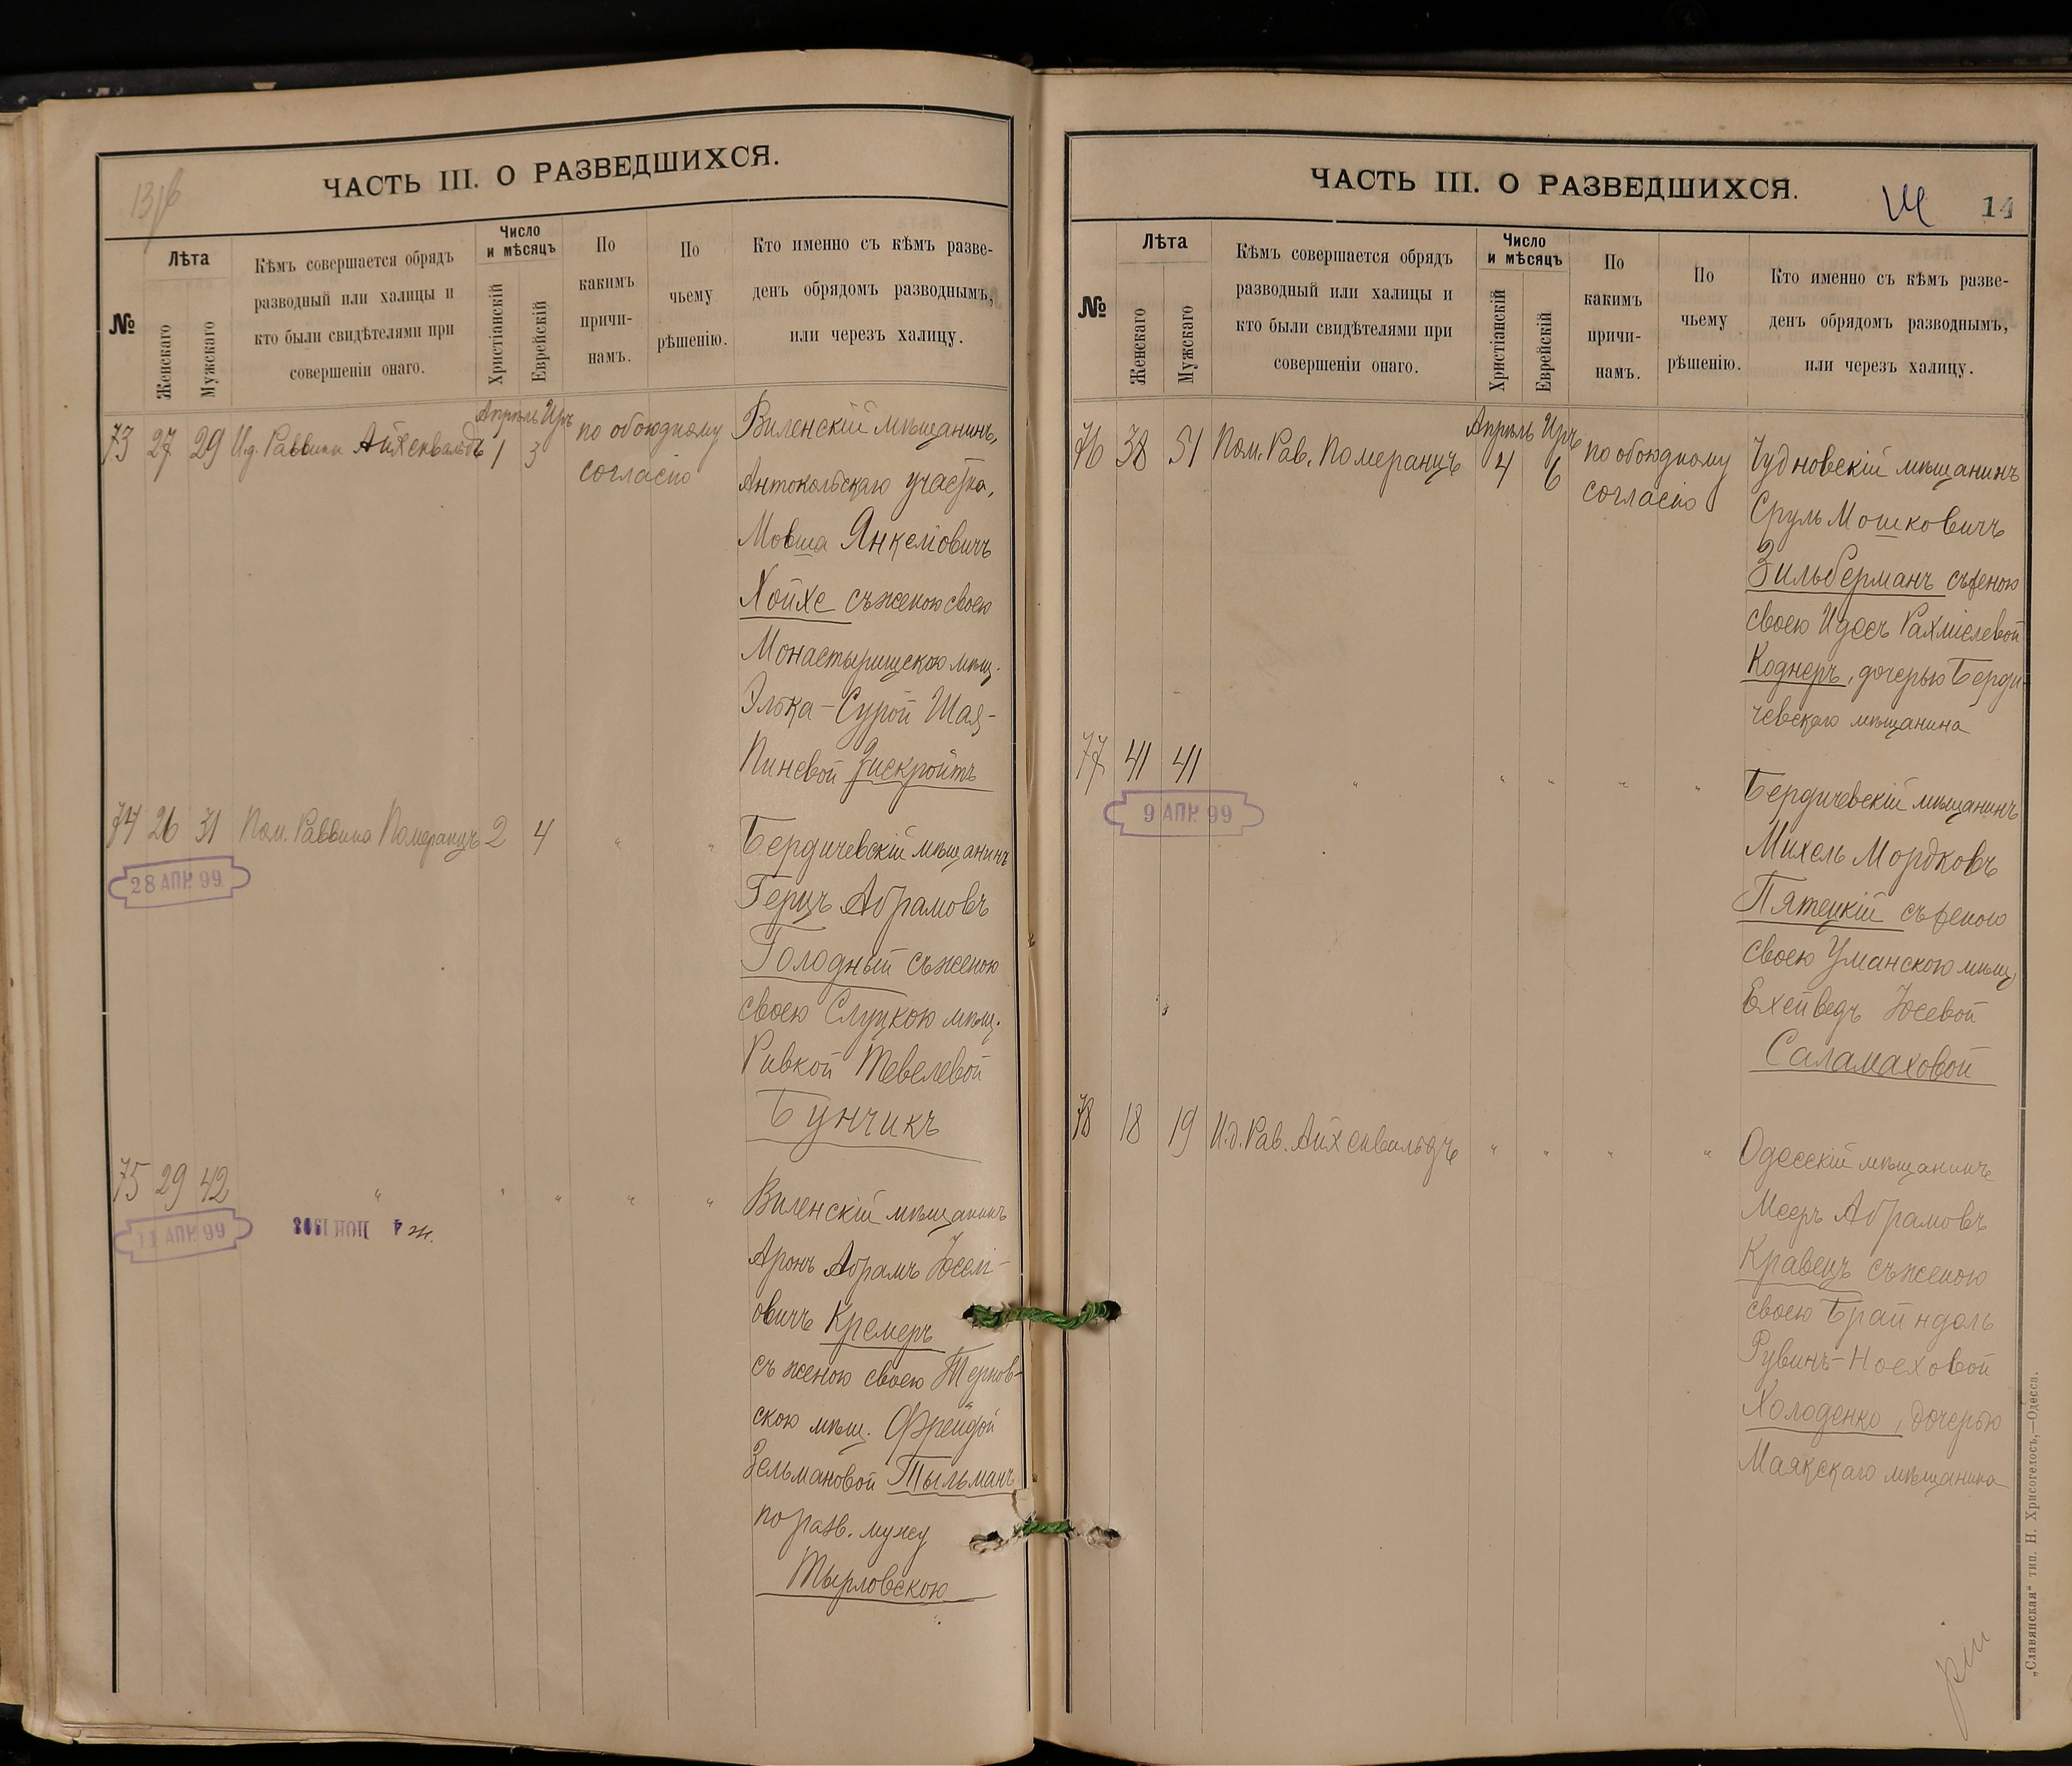 13 об
ЧАСТЬ III. О РАЗВЕДШИХСЯ.
№
Лѣта
Женскаго
Мужскаго
Кѣмъ совершается обрядъ
разводный или халицы и
кто были свидѣтелями при
совершеніи онаго.
Число
и мѣсяцъ
Христіанскій
Еврейскій
По
какимъ
причи-
намъ.
По
чьему
рѣшенію.
Кто именно съ кѣмъ разве-
денъ обрядомъ разводнымъ,
или черезъ халицу.
Апрѣль Иръ
73 27 29 И.д. Раввина Айхенвальдъ 1 3
по обоюдному
согласію
Виленскій мѣщанинъ,
Антокольскаго участка,
Мовша Янкеліовичъ
Хойхе съ женою своею
Монастырищскою мѣщ.
Элька-Сурой Шая-
Пиневой Зискройтъ
74 26 31 Пом. Раввина Померанцъ 2 4 " "
28 АПР. 99
Бердичевскій мѣщанинъ
Герцъ Абрамовъ
Голодный съ женою
своею Слуцкою мѣщ.
Ривкой Тевелевой
Бунчикъ
75 29 42 " " " " "
11 АПР. 99
4 ІЮН 1903
Виленскій мѣщанинъ
Аронъ Абрамъ Іосел-
овичъ Кремеръ
съ женою своею Тернов-
скою мѣщ. Фрейдой
Зельмановой Тыльманъ
по разв. мужу
Тырловскою
ЧАСТЬ III. О РАЗВЕДШИХСЯ.
14
№
Лѣта
Женскаго
Мужскаго
Кѣмъ совершается обрядъ
разводный или халицы и
кто были свидѣтелями при
совершеніи онаго.
Число
и мѣсяцъ
Христіанскій
Еврейскій
По
какимъ
причи-
намъ.
По
чьему
рѣшенію.
Кто именно съ кѣмъ разве-
денъ обрядомъ разводнымъ,
или черезъ халицу.
Апрѣль Иръ
76 38 51 Пом. Рав. Померанцъ 4 6
по обоюдному
согласію
Чудновскій мѣщанинъ
Сруль Мошковичъ
Зильберманъ съ женою
своею Идесъ Рахміелевой
Коднеръ, дочерью Берди-
чевскаго мѣщанина
77 41 41 " " " " "
9 АПР. 99
Бердичевскій мѣщанинъ
Михель Мордковъ
Пятецкій съ женою
своею Уманскою мѣщ.
Ехейведъ Іосевой
Саламаховой
78 18 19 И.д. Рав. Айхенвальдъ " " " "
Одесскій мѣщанинъ
Мееръ Абрамовъ
Кравецъ съ женою
своею Брайндель
Рувинъ-Ноеховой
Холоденко, дочерью
Маякскаго мѣщанина
„Славянская“ тип. Н. Хрисогелосъ,—Одесса.